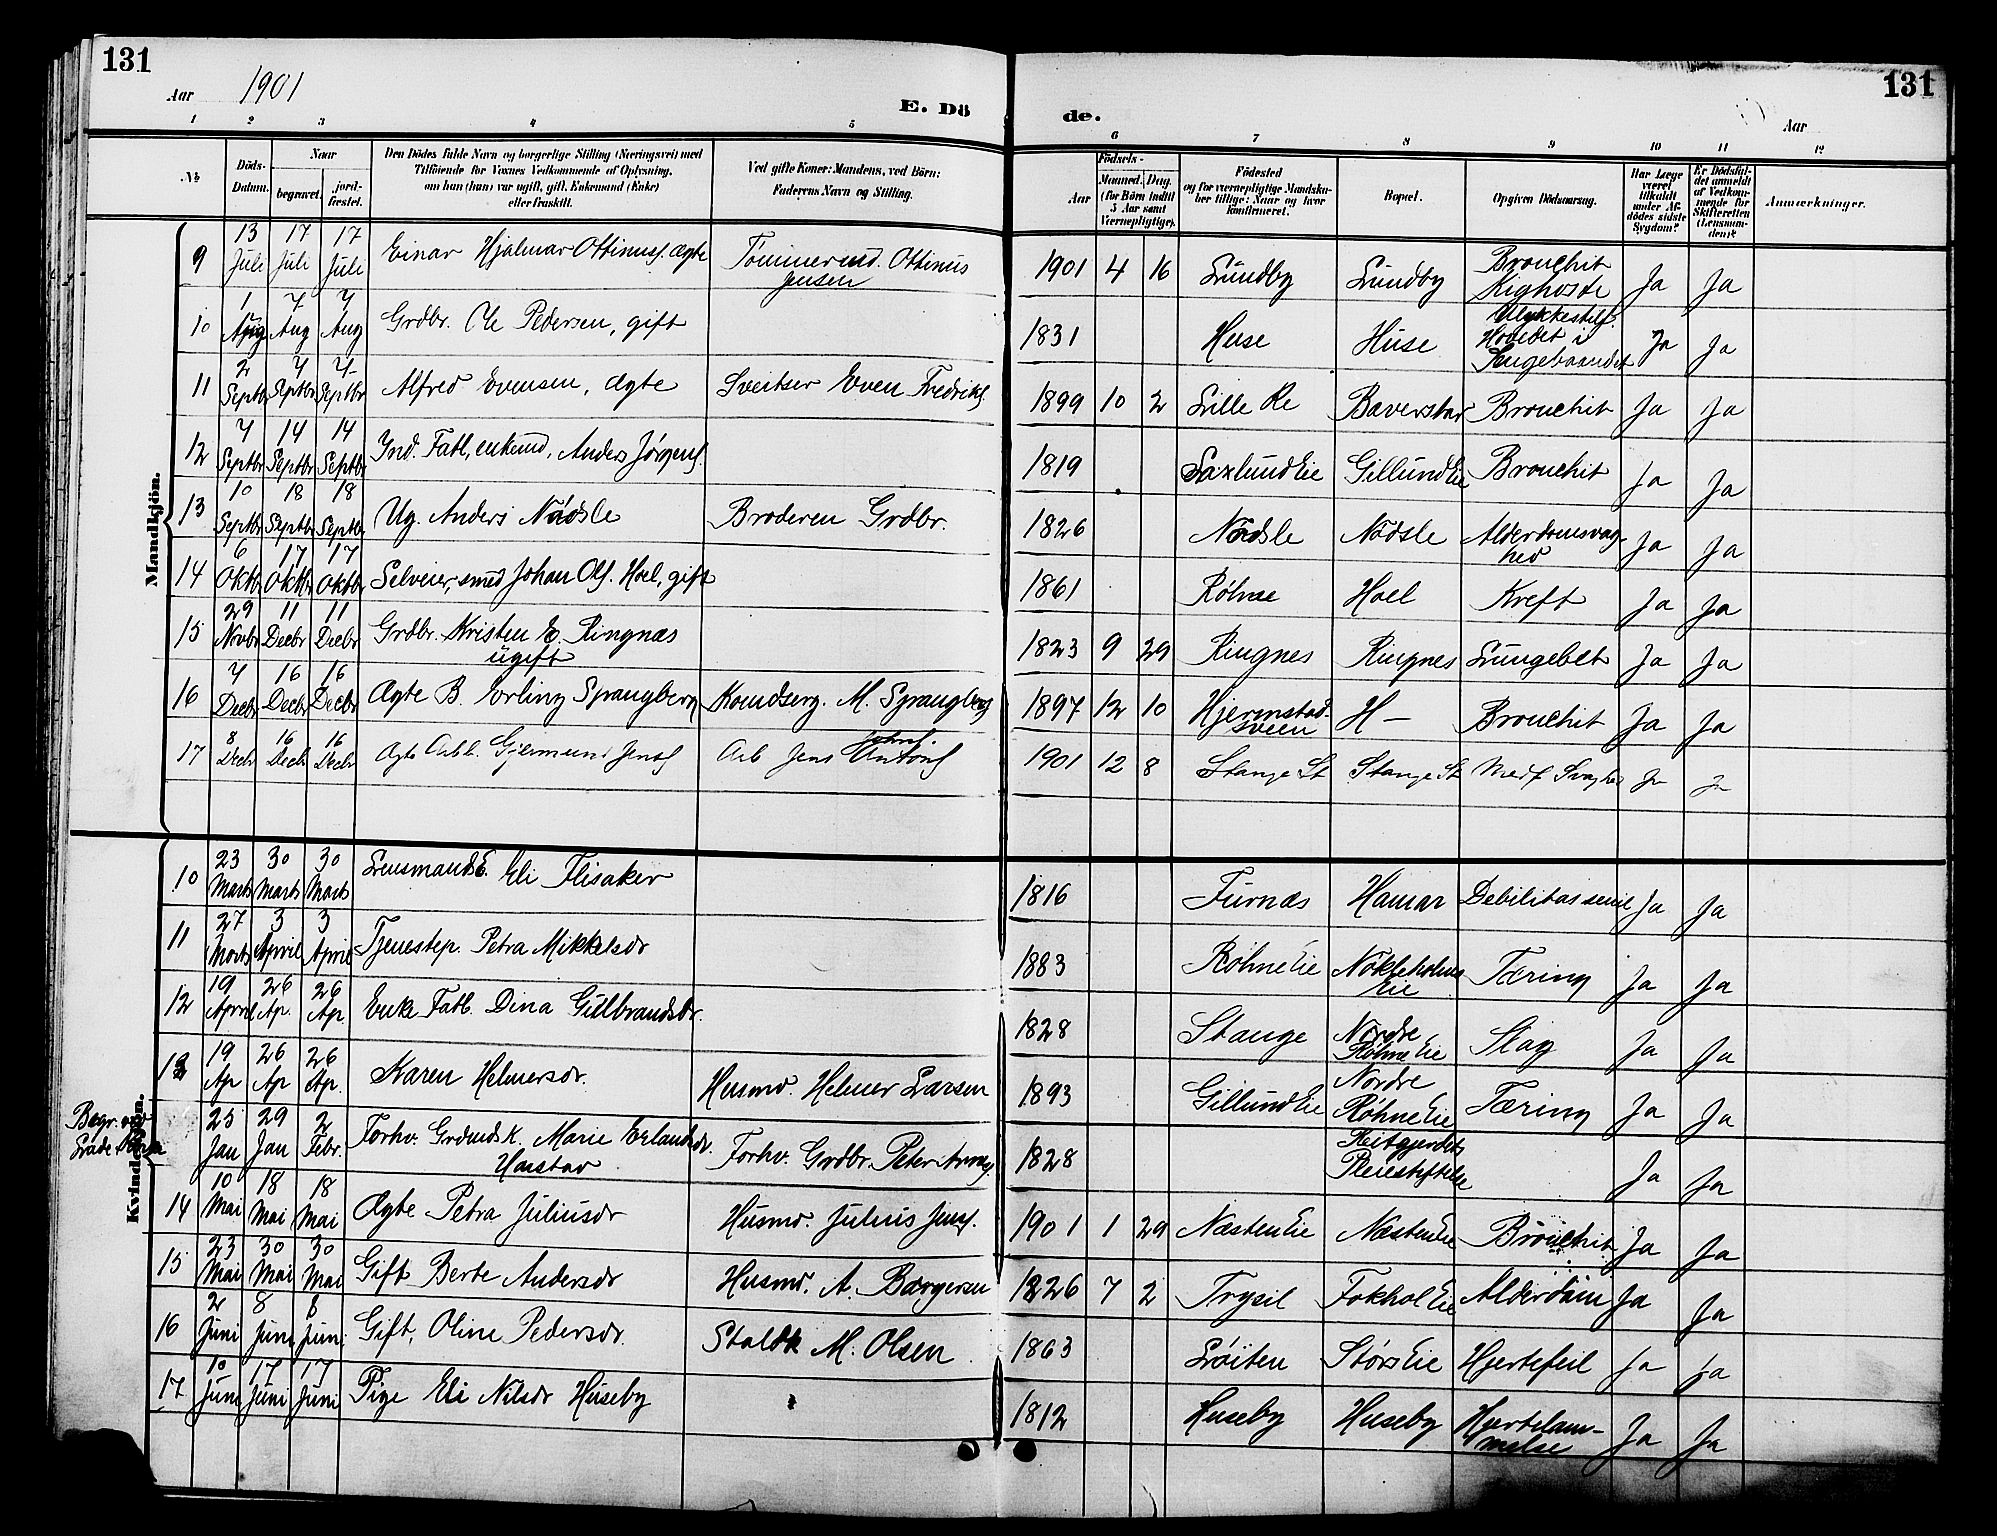 131
131
Aar 1901
E. Dö
de.
Aar
1 2 3 4 5 6 7 8 9 10 11 12
№
Döds-Datum.
Naar
begravet.
jord-fæstet.
Den Dödes fulde Navn og borgerlige Stilling (Næringsvei) med
Tilföiende for Voxnes Vedkommende af Oplysning,
om han (hun) var ugift, gift, Enkemand (Enke)
eller fraskilt.
Ved gifte Koner: Mandens, ved Börn:
Faderens Navn og Stilling.
Födsels-
Aar
Maaned. Dag.
(for Börn indtil
5 Aar samt
Værnepligtige).
Födested
og for værnepligtige Mandsku-
ber tillige: Naar og hvor
konfirmeret.
Bopæl.
Opgiven Dödsaarsag.
Har Læge
været
tilkaldt
under Af-
dödes sidste
Sygdom?
Er Dödsfal-
det anmeldt
af Vedkom-
mende for
Skifteretten
(Lensman-
den)?
Anmærkninger.
Mandkjön.
9 13 Juli 17 Juli 17 Juli Einar Hjalmar Ottinuss. ægte Tømmermd. Ottinus Jensen 1901 4 16 Lundby Lundby Bronchit Kighoste Ja Ja
10 1 Aug 7 Aug 7 Aug Grdbr. Ole Pedersen, gift 1831 Huse Huse Ulykkestilf. Hovedet i Sengebaandet Ja Ja
11 2 Septbr 7 Septbr 7 Septbr Alfred Evensen, ægte Sveitser Even Fredriks. 1899 10 2 Lille Re Baverstad Bronchit Ja Ja
12 7 Septbr 14 Septbr 14 Septbr Ind. Fatl, enkemd, Anders Jørgens. 1819 Saxlund Eie Gillund Eie Bronchit Ja Ja
13 10 Septbr 18 Septbr 18 Septbr Ug. Anders Nødsle Broderen Grdbr. 1826 Nødsle Nødsle Alderdomsvaghed Ja Ja
14 6 Oktbr 17 Oktbr 17 Oktbr Selveier, smed Johan Ols. Hoel, gift 1861 Røhne Hoel Kreft Ja Ja
15 29 Novbr 11 Decbr 11 Decbr Grdbr. Kristen E. Ringnæs ugift 1823 9 29 Ringnes Ringnes Lungebet Ja Ja
16 7 Decbr 16 Decbr 16 Decbr Ægte B. Erling Sprangberg Komdserg. M. Sprangberg 1897 12 10 Hjermstadsveen H— Bronchit Ja Ja
17 8 Decbr 16 Decbr 16 Decbr Ægte Gjermund Jens. Arb Jens Antons. 1901 12 8 Stange St Stange St Medf Svaghed Ja Ja
Kvindekjön.
10 23 Marts 30 Marts 30 Marts Lensmands E. Eli Flisaker 1816 Furnæs Hamar Debilitas senil Ja Ja
11 27 Marts 3 April 3 April Tjenestep. Petra Mikkelsdr 1883 Røhne Eie Nøkleholms Eie Tæring Ja Ja
12 19 April 26 Ap. 26 Ap. Enke Fatl. Dina Gulbrandsdr. 1828 Stange Nordre Røhne Eie Slag Ja Ja
13 19 Ap 26 Ap 26 Ap. Karen Helmersdr. Husmd. Helmer Larsen 1893 Gillund Eie Nordre Røhne Eie Tæring Ja Ja
Begr. ved Lade Kirke 25 Jan 29 Jan 2 Febr. Forhv. Grdmdsk. Marie Erlandsdr. Harstad Forhv. Grdbr. Peter 1828 Reitgjerdets Pleiestiftelse Ja Ja
14 10 Mai 18 Mai 18 Mai Ægte Petra Juliusdr Husmd. Julius Jens. 1901 1 29 Næsten Eie Næsten Eie Bronchit Ja Ja
15 23 Mai 30 Mai 30 Mai Gift Berte Andersdr Husmd. A. Børgersen 1826 7 2 Trysil Fokhol Eie Alderdom Ja Ja
16 2 Juni 8 Juni 8 Juni Gift, Oline Pedersdr. Staldk M. Olsen 1863 Løiten Størs Eie Hjertefeil Ja Ja
17 10 Juni 17 Juni 17 Juni Pige Eli Nilsdr Huseby 1812 Huseby Huseby Hjertelammelse Ja Ja